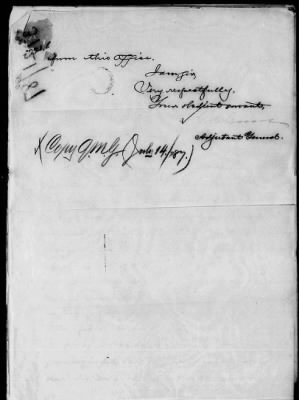 from this office.
I am, Sir,
Very respectfully,
Your obedient servant,
Adjutant General.
(Copy Q.M.G. July 14/87.)